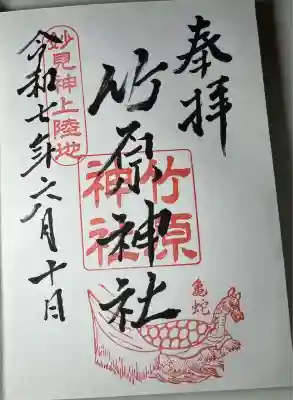 奉拝
竹原神社
竹原
神社
令和七年六月十日
妙見神上陸地
亀蛇